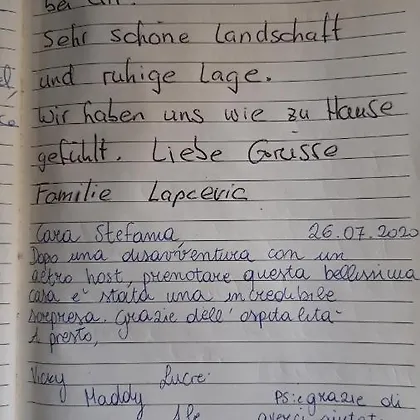 bei
Sehr schöne Landschaft
und ruhige Lage.
Wir haben uns wie zu Hause
gefühlt. Liebe Grüsse
Familie Lapcevic
Cara Stefania, 26.07.2020
Dopo una disavventura con un
altro host, prenotare questa bellissima
casa e' stata una incredibile
sorpresa. Grazie dell'ospitalità
A presto,
Vicky Lucre
Maddy PS: e grazie di
Ale averci aiutat